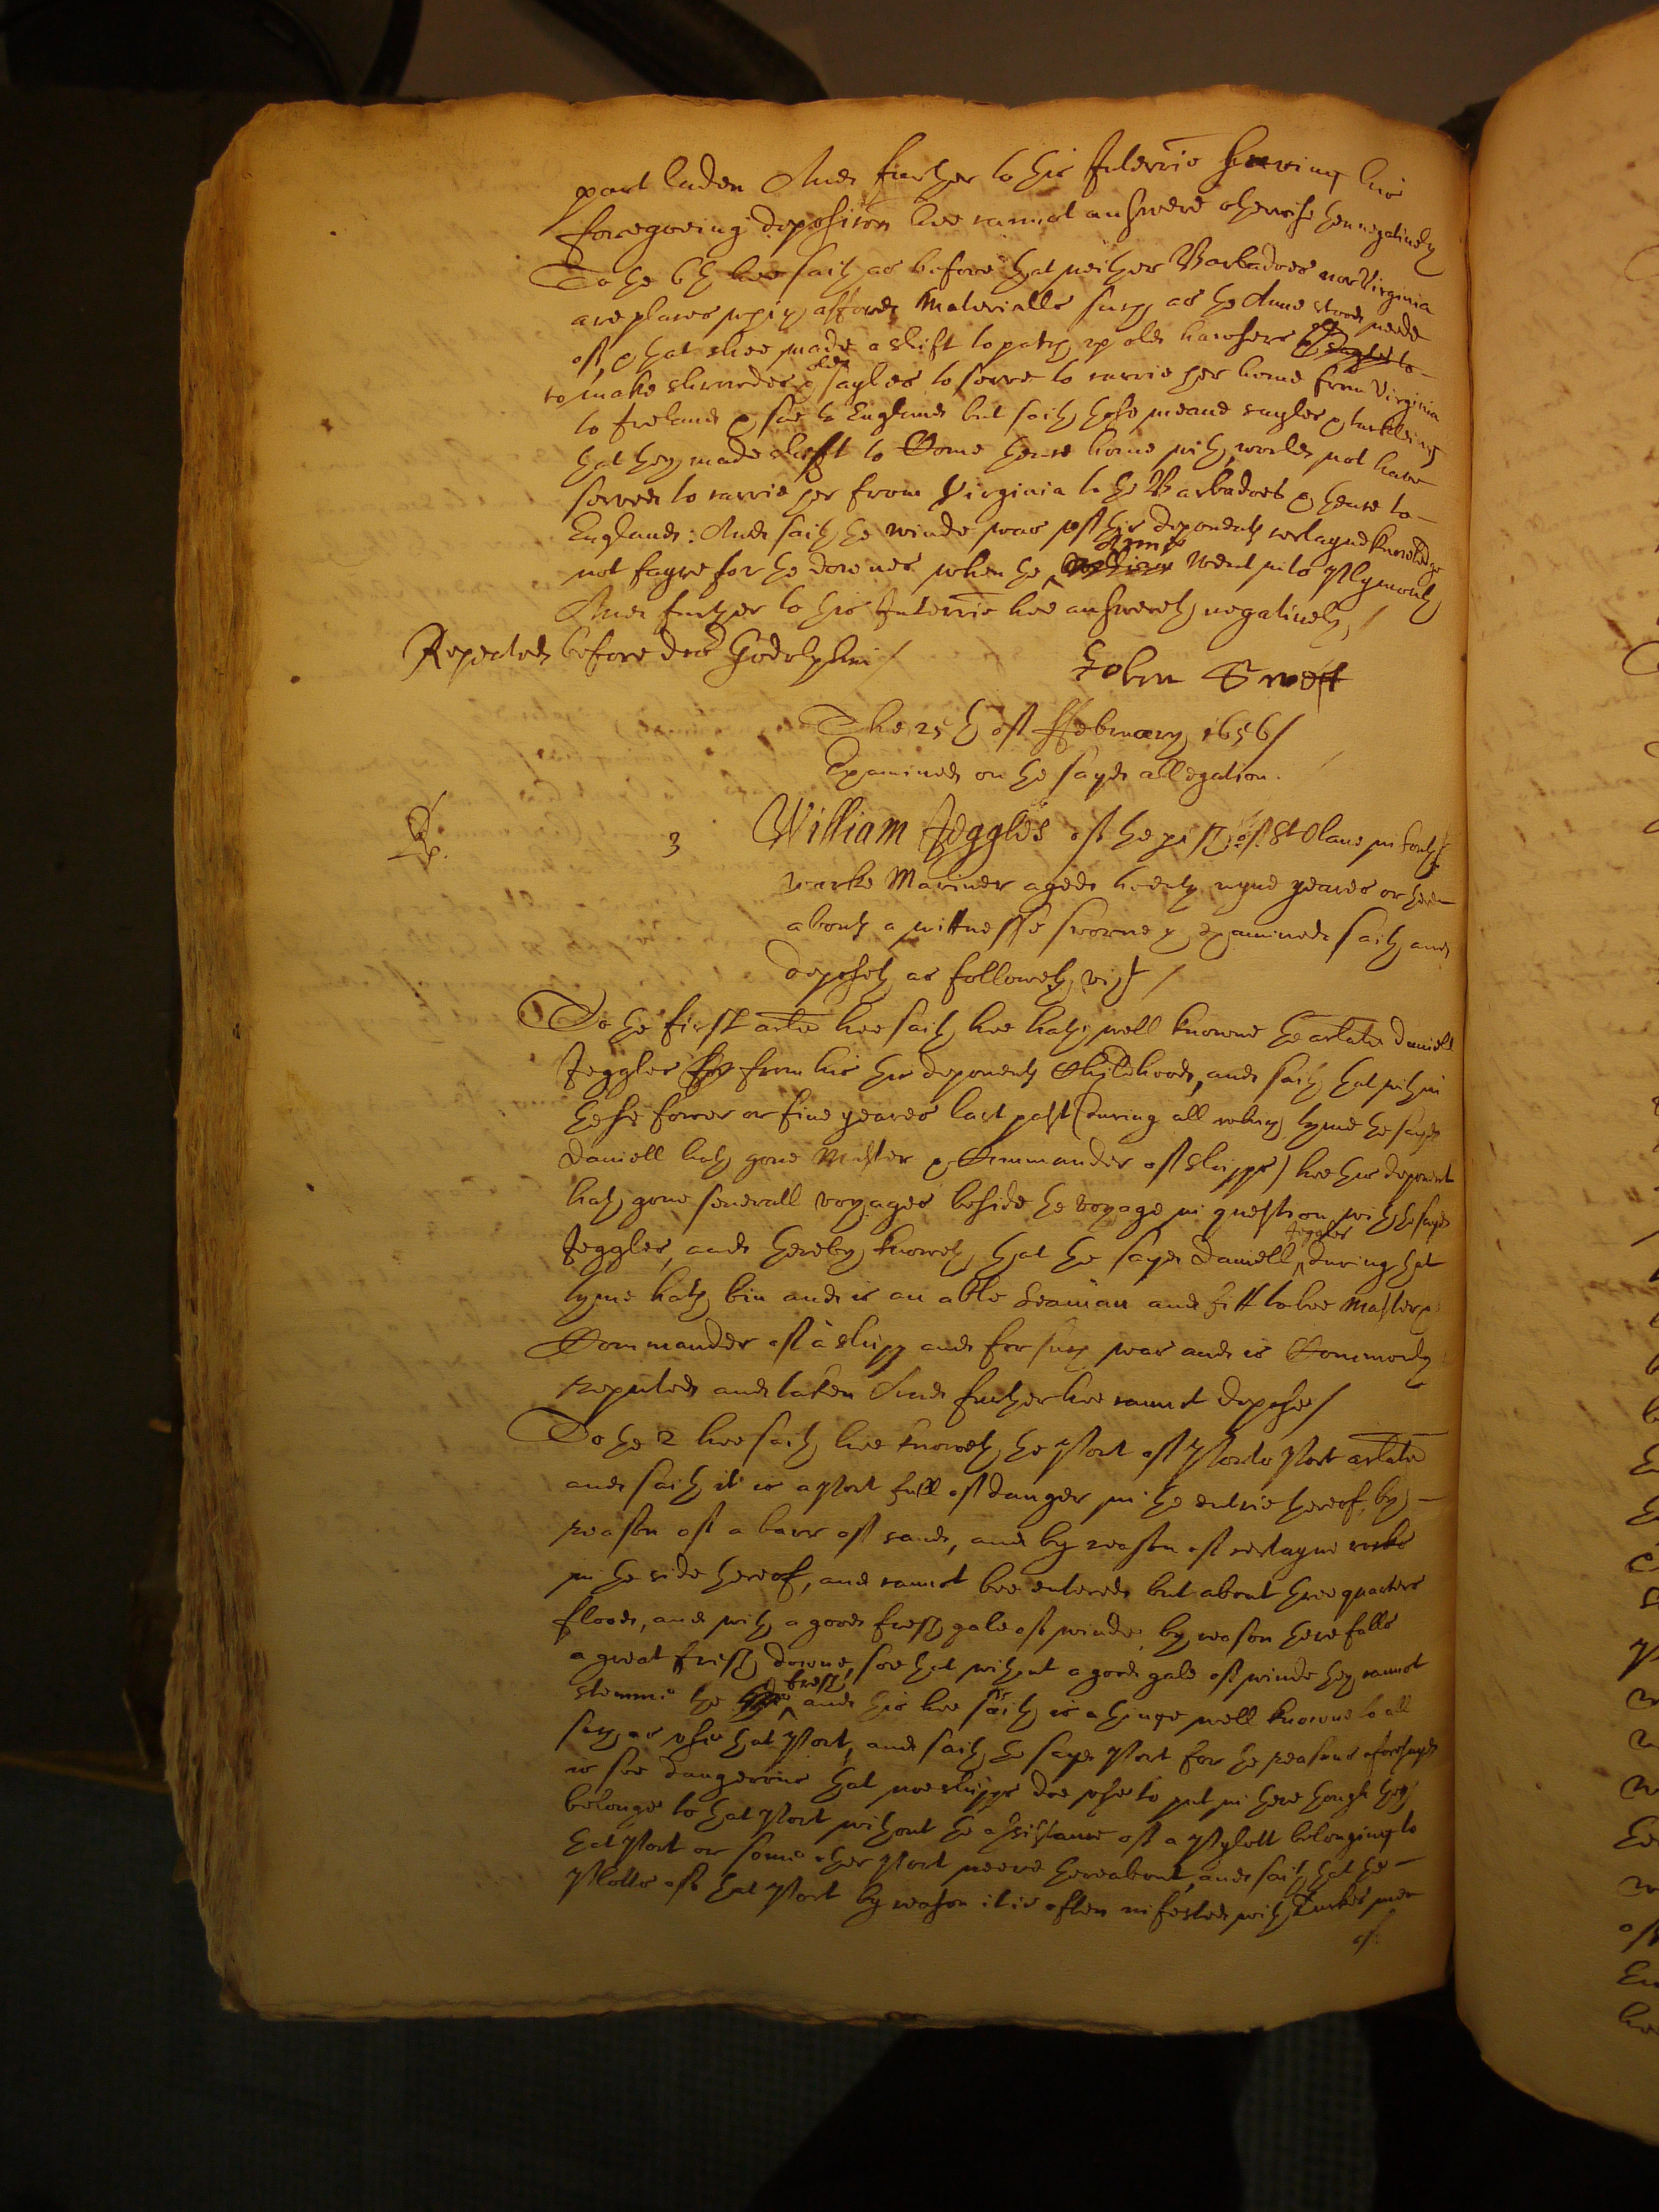 part laden And further to this Interrie saving his
foregoeing deposition hee cannot answere otherwise then negatively
To the 6th hee saith as before that neither Barbadoes nor Virginia
are places which afford Materialls such as the Anne stood neede
of, & that shee made a shift to patch up old hawsers
to make shrowdes & old sayles to serve to carrie her home from Virginia
to Ireland & soe to England but saith those meane sayles & tackleing
that they made shift to Come thence home with, would not have
served to carrie her from Virginia to the Barbadoes & thence to
England: And saith the winde was of this deponents certayne knowledge
not fayre for the downes when the Anne went into Plymouth
And further to this Interrie hee answereth negatively /
Repeated before doctor Godolphin /
John Swift
The 25th of ffebruary 1656 /
Examined on the sayd allegation.
3 William Jeggles of the parish of St Olave in South
warke Mariner aged twenty nyne yeares or there
abouts a wittnesse sworne & examined saith and
deposeth as followeth vizt /
To the first artle hee saith hee hath well knowne the artlate Daniell
Jeggles from his this deponents Childhood, and saith that within
these fower or five yeares last past (during all which tyme the sayd
Daniell hath gone Master & Commander of shipps) hee this deponent
hath gone severall voyages beside the voyage in question with the sayd
Jeggles, and thereby knoweth that the sayd Daniell Jeggles during that
tyme hath bin and is an able Seaman and fitt to bee Master &
Commander of a shipp and for such was and is Commonly
reputed and taken And further hee cannot depose /
To the 2 hee saith hee knoweth the Port of Porto Port artlate
and saith it is a Port full of danger in the entrie thereof, by
reason of a barr of sand, and by reason of certayne rocks
in the side thereof, and cannot bee entered but about three quarters
flood, and with a good fresh gale of winde by reason there falls
a great fresh downe, soe that without a good gale of winde they cannot
stemme the fresh, and this hee saith is a thinge well knowne to all
such as use that Port, and saith the sayd Port for the reasons aforesayd
is soe dangerous that noe shipps doe use to put in there though they
belonge to that Port without the assistance of a Pylott belonging to
that Port or some other Port neere thereabout, and saith that the
Pilotts of that Port by reason it is often infested with Turkes men
of